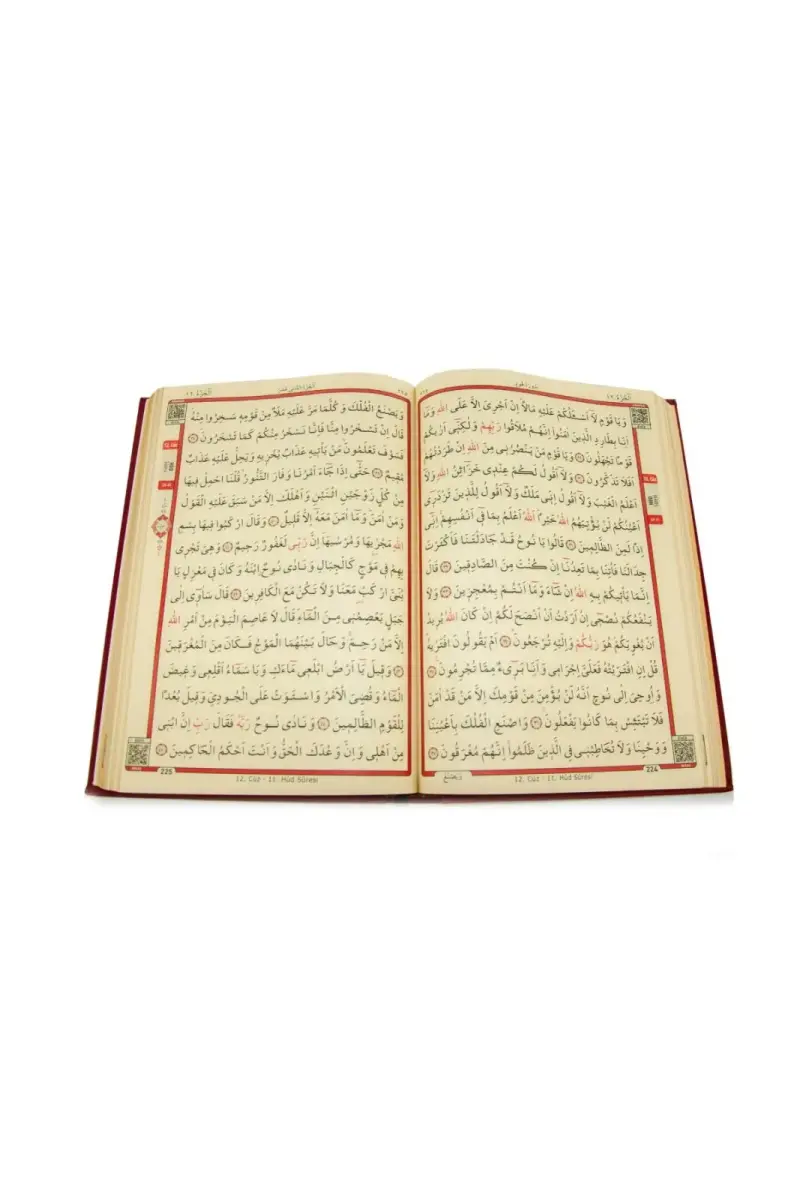 الْجُزْءُ ١٢
سُورَةُ هُودٍ
وَيَا قَوْمِ لَٓا اَسْـَٔلُكُمْ عَلَيْهِ مَالًا اِنْ اَجْرِىَ اِلَّا عَلَى اللّٰهِ وَمَٓا
اَنَا۬ بِطَارِدِ الَّذٖينَ اٰمَنُوا اِنَّهُمْ مُلَاقُوا رَبِّهِمْ وَلٰكِنّٖٓى اَرٰيكُمْ
قَوْمًا تَجْهَلُونَ ﴿٢٩﴾ وَيَا قَوْمِ مَنْ يَنْصُرُنٖى مِنَ اللّٰهِ اِنْ طَرَدْتُهُمْ
اَفَلَا تَذَكَّرُونَ ﴿٣٠﴾ وَلَٓا اَقُولُ لَكُمْ عِنْدٖى خَزَٓائِنُ اللّٰهِ وَلَٓا
اَعْلَمُ الْغَيْبَ وَلَٓا اَقُولُ اِنّٖى مَلَكٌ وَلَٓا اَقُولُ لِلَّذٖينَ تَزْدَرٖٓى
اَعْيُنُكُمْ لَنْ يُؤْتِيَهُمُ اللّٰهُ خَيْرًا اَللّٰهُ اَعْلَمُ بِمَا فٖٓى اَنْفُسِهِمْ اِنّٖٓى
اِذًا لَمِنَ الظَّالِمٖينَ ﴿٣١﴾ قَالُوا يَا نُوحُ قَدْ جَادَلْتَنَا فَاَكْثَرْتَ
جِدَالَنَا فَأْتِنَا بِمَا تَعِدُنَٓا اِنْ كُنْتَ مِنَ الصَّادِقٖينَ ﴿٣٢﴾ قَالَ
اِنَّمَا يَأْتٖيكُمْ بِهِ اللّٰهُ اِنْ شَٓاءَ وَمَٓا اَنْتُمْ بِمُعْجِزٖينَ ﴿٣٣﴾ وَلَا
يَنْفَعُكُمْ نُصْحٖٓى اِنْ اَرَدْتُ اَنْ اَنْصَحَ لَكُمْ اِنْ كَانَ اللّٰهُ يُرٖيدُ
اَنْ يُغْوِيَكُمْ هُوَ رَبُّكُمْ وَاِلَيْهِ تُرْجَعُونَ ﴿٣٤﴾ اَمْ يَقُولُونَ افْتَرٰيهُ
قُلْ اِنِ افْتَرَيْتُهُ فَعَلَىَّ اِجْرَامٖى وَاَنَا۬ بَرٖٓىءٌ مِمَّا تُجْرِمُونَ ﴿٣٥﴾
وَاُوحِىَ اِلٰى نُوحٍ اَنَّهُ لَنْ يُؤْمِنَ مِنْ قَوْمِكَ اِلَّا مَنْ قَدْ اٰمَنَ
فَلَا تَبْتَئِسْ بِمَا كَانُوا يَفْعَلُونَ ﴿٣٦﴾ وَاصْنَعِ الْفُلْكَ بِاَعْيُنِنَا
وَوَحْيِنَا وَلَا تُخَاطِبْنٖى فِى الَّذٖينَ ظَلَمُوا اِنَّهُمْ مُغْرَقُونَ ﴿٣٧﴾
224
12. Cüz - 11. Hûd Sûresi
وَيَصْنَعُ
الْجُزْءُ الثَّانِى عَشَرَ
الْجُزْءُ ١٢
وَيَصْنَعُ الْفُلْكَ وَكُلَّمَا مَرَّ عَلَيْهِ مَلَاٌ مِنْ قَوْمِهٖ سَخِرُوا مِنْهُ
قَالَ اِنْ تَسْخَرُوا مِنَّا فَاِنَّا نَسْخَرُ مِنْكُمْ كَمَا تَسْخَرُونَ ﴿٣٨﴾
فَسَوْفَ تَعْلَمُونَ مَنْ يَأْتٖيهِ عَذَابٌ يُخْزٖيهِ وَيَحِلُّ عَلَيْهِ عَذَابٌ
مُقٖيمٌ ﴿٣٩﴾ حَتّٰٓى اِذَا جَٓاءَ اَمْرُنَا وَفَارَ التَّنُّورُ قُلْنَا احْمِلْ فٖيهَا
مِنْ كُلٍّ زَوْجَيْنِ اثْنَيْنِ وَاَهْلَكَ اِلَّا مَنْ سَبَقَ عَلَيْهِ الْقَوْلُ
وَمَنْ اٰمَنَ وَمَٓا اٰمَنَ مَعَهُٓ اِلَّا قَلٖيلٌ ﴿٤٠﴾ وَقَالَ ارْكَبُوا فٖيهَا بِسْمِ
اللّٰهِ مَجْرٰ۪ۭيهَا وَمُرْسٰيهَا اِنَّ رَبّٖى لَغَفُورٌ رَحٖيمٌ ﴿٤١﴾ وَهِىَ تَجْرٖى
بِهِمْ فٖى مَوْجٍ كَالْجِبَالِ وَنَادٰى نُوحٌۨ ابْنَهُ وَكَانَ فٖى مَعْزِلٍ يَا
بُنَىَّ ارْكَبْ مَعَنَا وَلَا تَكُنْ مَعَ الْكَافِرٖينَ ﴿٤٢﴾ قَالَ سَاٰوٖٓى اِلٰى
جَبَلٍ يَعْصِمُنٖى مِنَ الْمَٓاءِ قَالَ لَا عَاصِمَ الْيَوْمَ مِنْ اَمْرِ اللّٰهِ
اِلَّا مَنْ رَحِمَ وَحَالَ بَيْنَهُمَا الْمَوْجُ فَكَانَ مِنَ الْمُغْرَقٖينَ
﴿٤٣﴾ وَقٖيلَ يَٓا اَرْضُ ابْلَعٖى مَٓاءَكِ وَيَا سَمَٓاءُ اَقْلِعٖى وَغٖيضَ
الْمَٓاءُ وَقُضِىَ الْاَمْرُ وَاسْتَوَتْ عَلَى الْجُودِىِّ وَقٖيلَ بُعْدًا
لِلْقَوْمِ الظَّالِمٖينَ ﴿٤٤﴾ وَنَادٰى نُوحٌ رَبَّهُ فَقَالَ رَبِّ اِنَّ ابْنٖى
مِنْ اَهْلٖى وَاِنَّ وَعْدَكَ الْحَقُّ وَاَنْتَ اَحْكَمُ الْحَاكِمٖينَ ﴿٤٥﴾
225
12. Cüz - 11. Hûd Sûresi